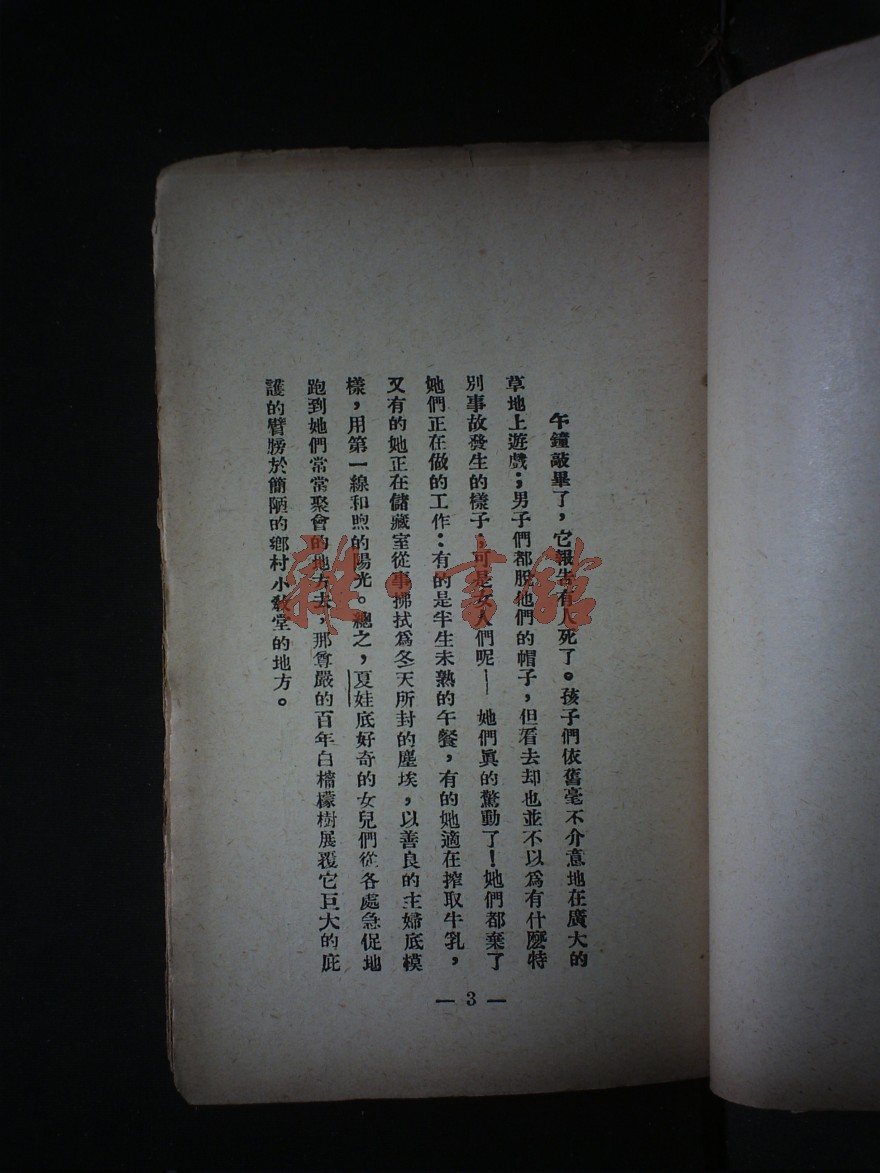 午鐘敲畢了，它報告有人死了。孩子們依舊毫不介意地在廣大的
草地上遊戲；男子們都脫他們的帽子，但看去却也並不以爲有什麽特
別事故發生的樣子；可是女人們呢——她們眞的驚動了！她們都棄了
她們正在做的工作：有的是半生未熟的午餐，有的她適在搾取牛乳，
又有的她正在儲藏室從事拂拭爲冬天所封的塵埃，以善良的主婦底模
樣，用第一線和煦的陽光。總之，夏娃底好奇的女兒們從各處急促地
跑到她們常常聚會的地方去，那尊嚴的百年白檸檬樹展覆它巨大的庇
護的臂膀於簡陋的鄉村小敎堂的地方。
— 3 —
雜·書館